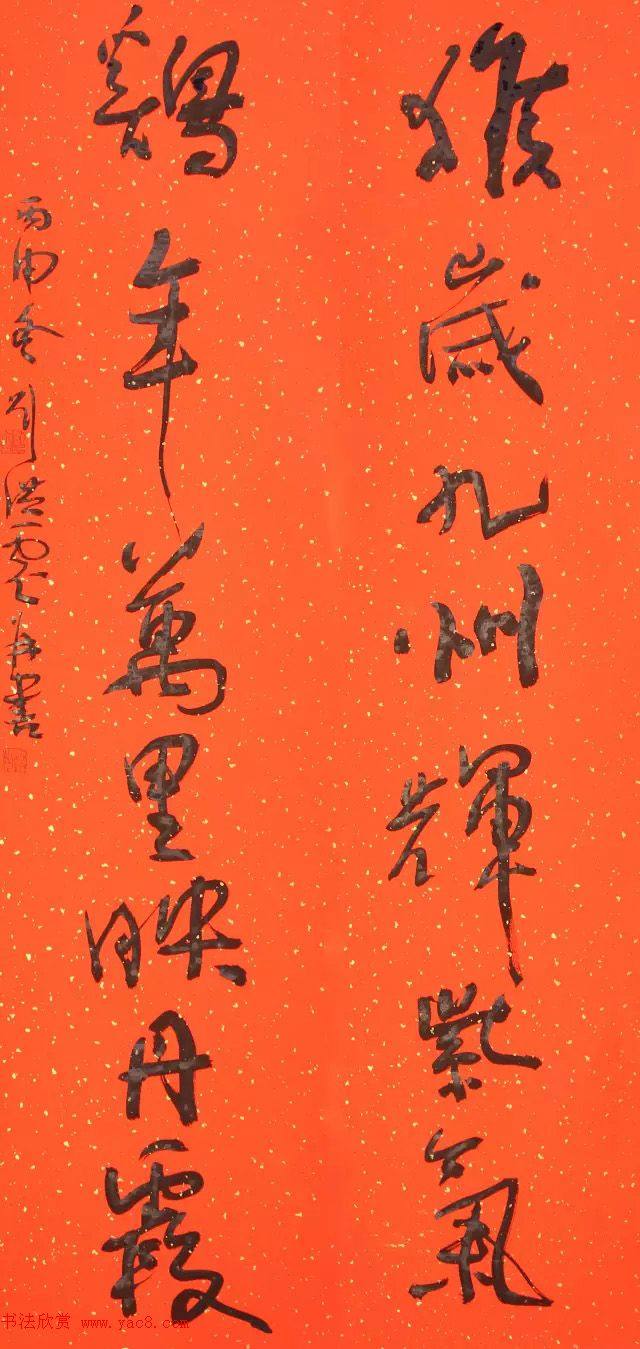 猴歲九州輝紫氣
鷄年萬里映丹霞
丙申冬劉洪雲書
书法欣赏 www.yac8.com